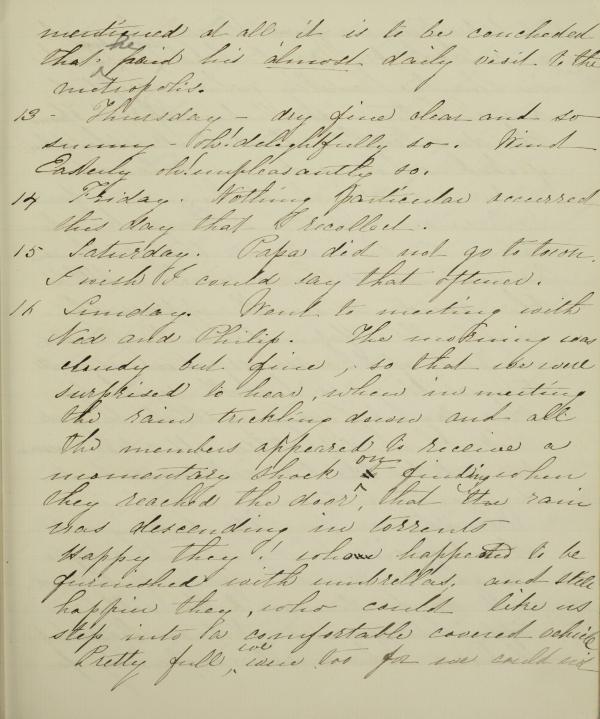 mentioned at all it is to be concluded
that he paid his almost daily visit to the
metropolis.
13 - Thursday - dry fine clear and so
sunny - oh! delightfully so. Wind
Easterly oh! unpleasantly so.
14 Friday. Nothing particular occurred
this day that I recollect.
15 Saturday. Papa did not go to town.
I wish I could say that oftener.
16 Sunday. Went to meeting with
Ned and Philip. The morning was
cloudy but fine, so that we were
surprised to hear, when in meeting
the rain trickling down and all
the members appeared to receive a
momentary shock on finding when
they reached the door, that the rain
was descending in torrents
Happy they! who happened to be
furnished with umbrellas, and still
happier they, who could like us
step into a comfortable covered vehicle
Pretty full, we were too for we could not